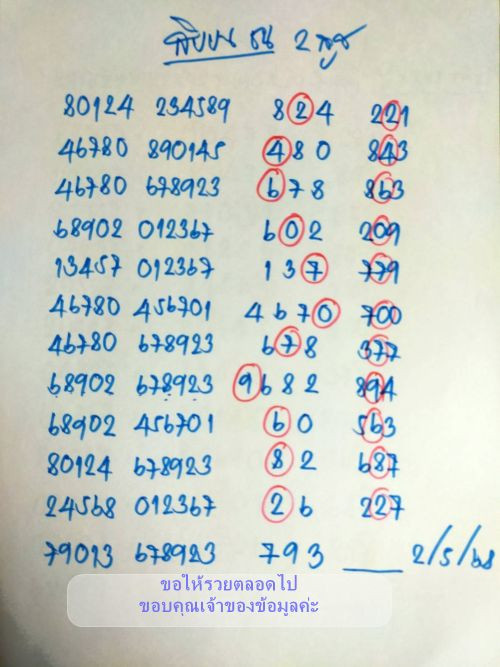 สิบบน ชน 2 สูตร
80124 234589 824 221
46780 890145 480 843
46780 678923 678 863
68902 012367 602 209
13457 012367 137 779
46780 456701 4670 700
46780 678923 678 377
68902 678923 9682 894
68902 456701 60 563
80124 678923 82 687
24568 012367 26 227
79013 678923 793 ___ 2/5/68
ขอให้รวยตลอดไป
ขอบคุณเจ้าของข้อมูลค่ะ